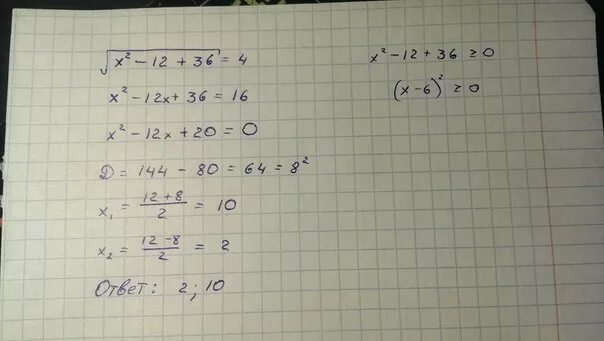 √(x² - 12 + 36) = 4
x² - 12x + 36 = 16
x² - 12x + 20 = 0
D = 144 - 80 = 64 = 8²
x₁ = (12 + 8)/2 = 10
x₂ = (12 - 8)/2 = 2
Ответ: 2; 10
x² - 12 + 36 ≥ 0
(x - 6)² ≥ 0